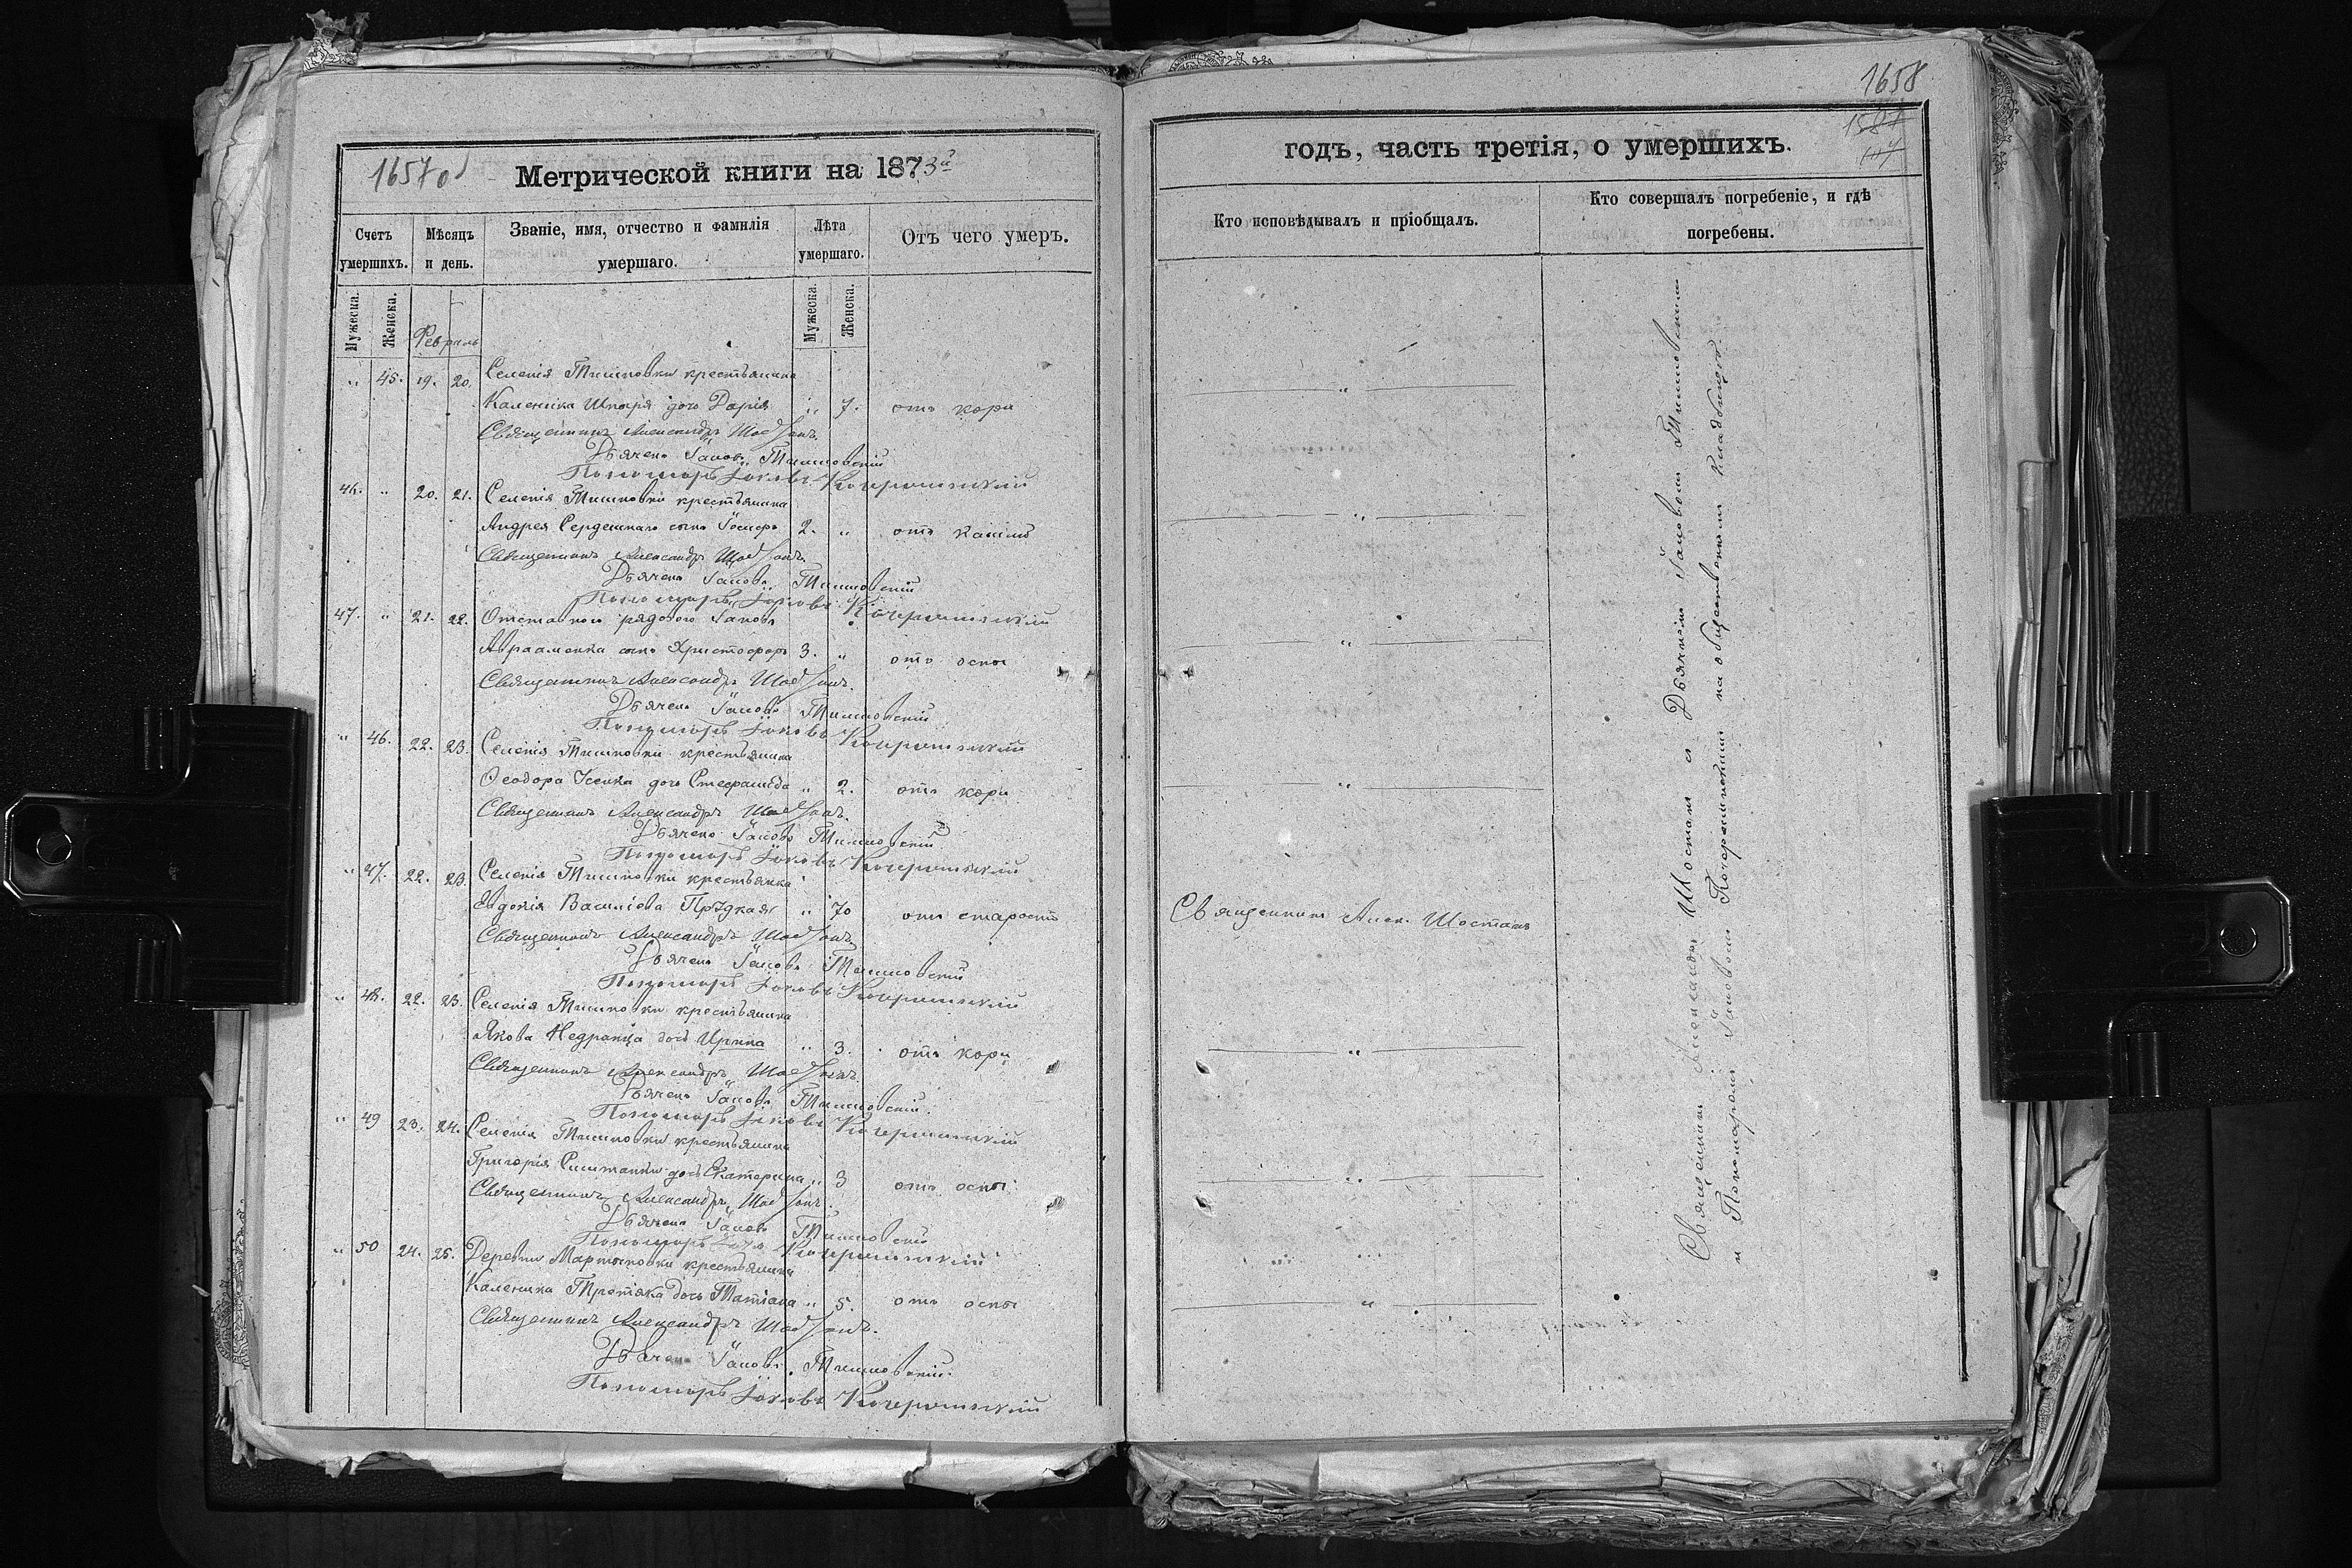 1657об
Метрической книги на 1873й
Счетъ умершихъ.
Мѣсяцъ и день.
Званіе, имя, отчество и фамилія умершаго.
Лѣта умершаго.
Отъ чего умеръ.
Мужеска.
Женска.
Февраль
Мужеска.
Женска.
" 45. 19. 20. Селенія Тишковки крестьянина
Каленика дочь Дарія " 7. отъ кори
Священникъ Александръ Шостакъ
Дьячекъ Іаковъ Тишковскій
Пономарь Іаковъ
46. " 20. 21. Селенія Тишковки крестьянина
Андрея сынъ Іосифъ 2. " отъ кашлю
Священникъ Александръ Шостакъ
Дьячекъ Іаковъ Тишковскій
Пономарь Іаковъ
47. " 21. 22. Отставного рядового Іакова
Авраменка сынъ Христофоръ 3. " отъ оспы
Священникъ Александръ Шостакъ.
Дьячекъ Іаковъ Тишковскій
Пономарь Іаковъ
" 46. 22. 23. Селенія Тишковки крестьянина
Ѳеодора Усенка дочь Стефанида " 2. отъ кори
Священникъ Александръ Шостакъ.
Дьячекъ Іаковъ Тишковскій
Пономарь Іаковъ
" 47. 22. 23. Селенія Тишковки крестьянка
Евдокія Василіева " 70 отъ старости
Священникъ Александръ Шостакъ
Дьячекъ Іаковъ Тишковскій
Пономарь Іаковъ
" 48. 22. 23. Селенія Тишковки крестьянина
Якова дочь Ирина " 3. отъ кори
Священникъ Александръ Шостакъ.
Дьячекъ Іаковъ Тишковскій.
Пономарь Іаковъ
" 49 23. 24. Селенія Тишковки крестьянина
Григорія дочь Екатерина " 3 отъ оспы
Священникъ Александръ Шостакъ.
Дьячекъ Іаковъ Тишковскій
Пономарь Іаковъ
" 50 24. 25. Деревни Мартыновки крестьянина
Каленика Третяка дочь Татіана " 5. отъ оспы
Священникъ Александръ Шостакъ.
Дьячекъ Іаковъ Тишковскій.
Пономарь Іаковъ
1658
годъ, часть третія, о умершихъ.
Кто исповѣдывалъ и пріобщалъ.
Кто совершалъ погребеніе, и гдѣ погребены.
Священникъ Алек. Шостакъ
Священникъ Александръ Шостакъ съ Дьячкомъ Іаковомъ Тишковскимъ
и Пономаремъ Іаковомъ на общественномъ кладбищѣ.